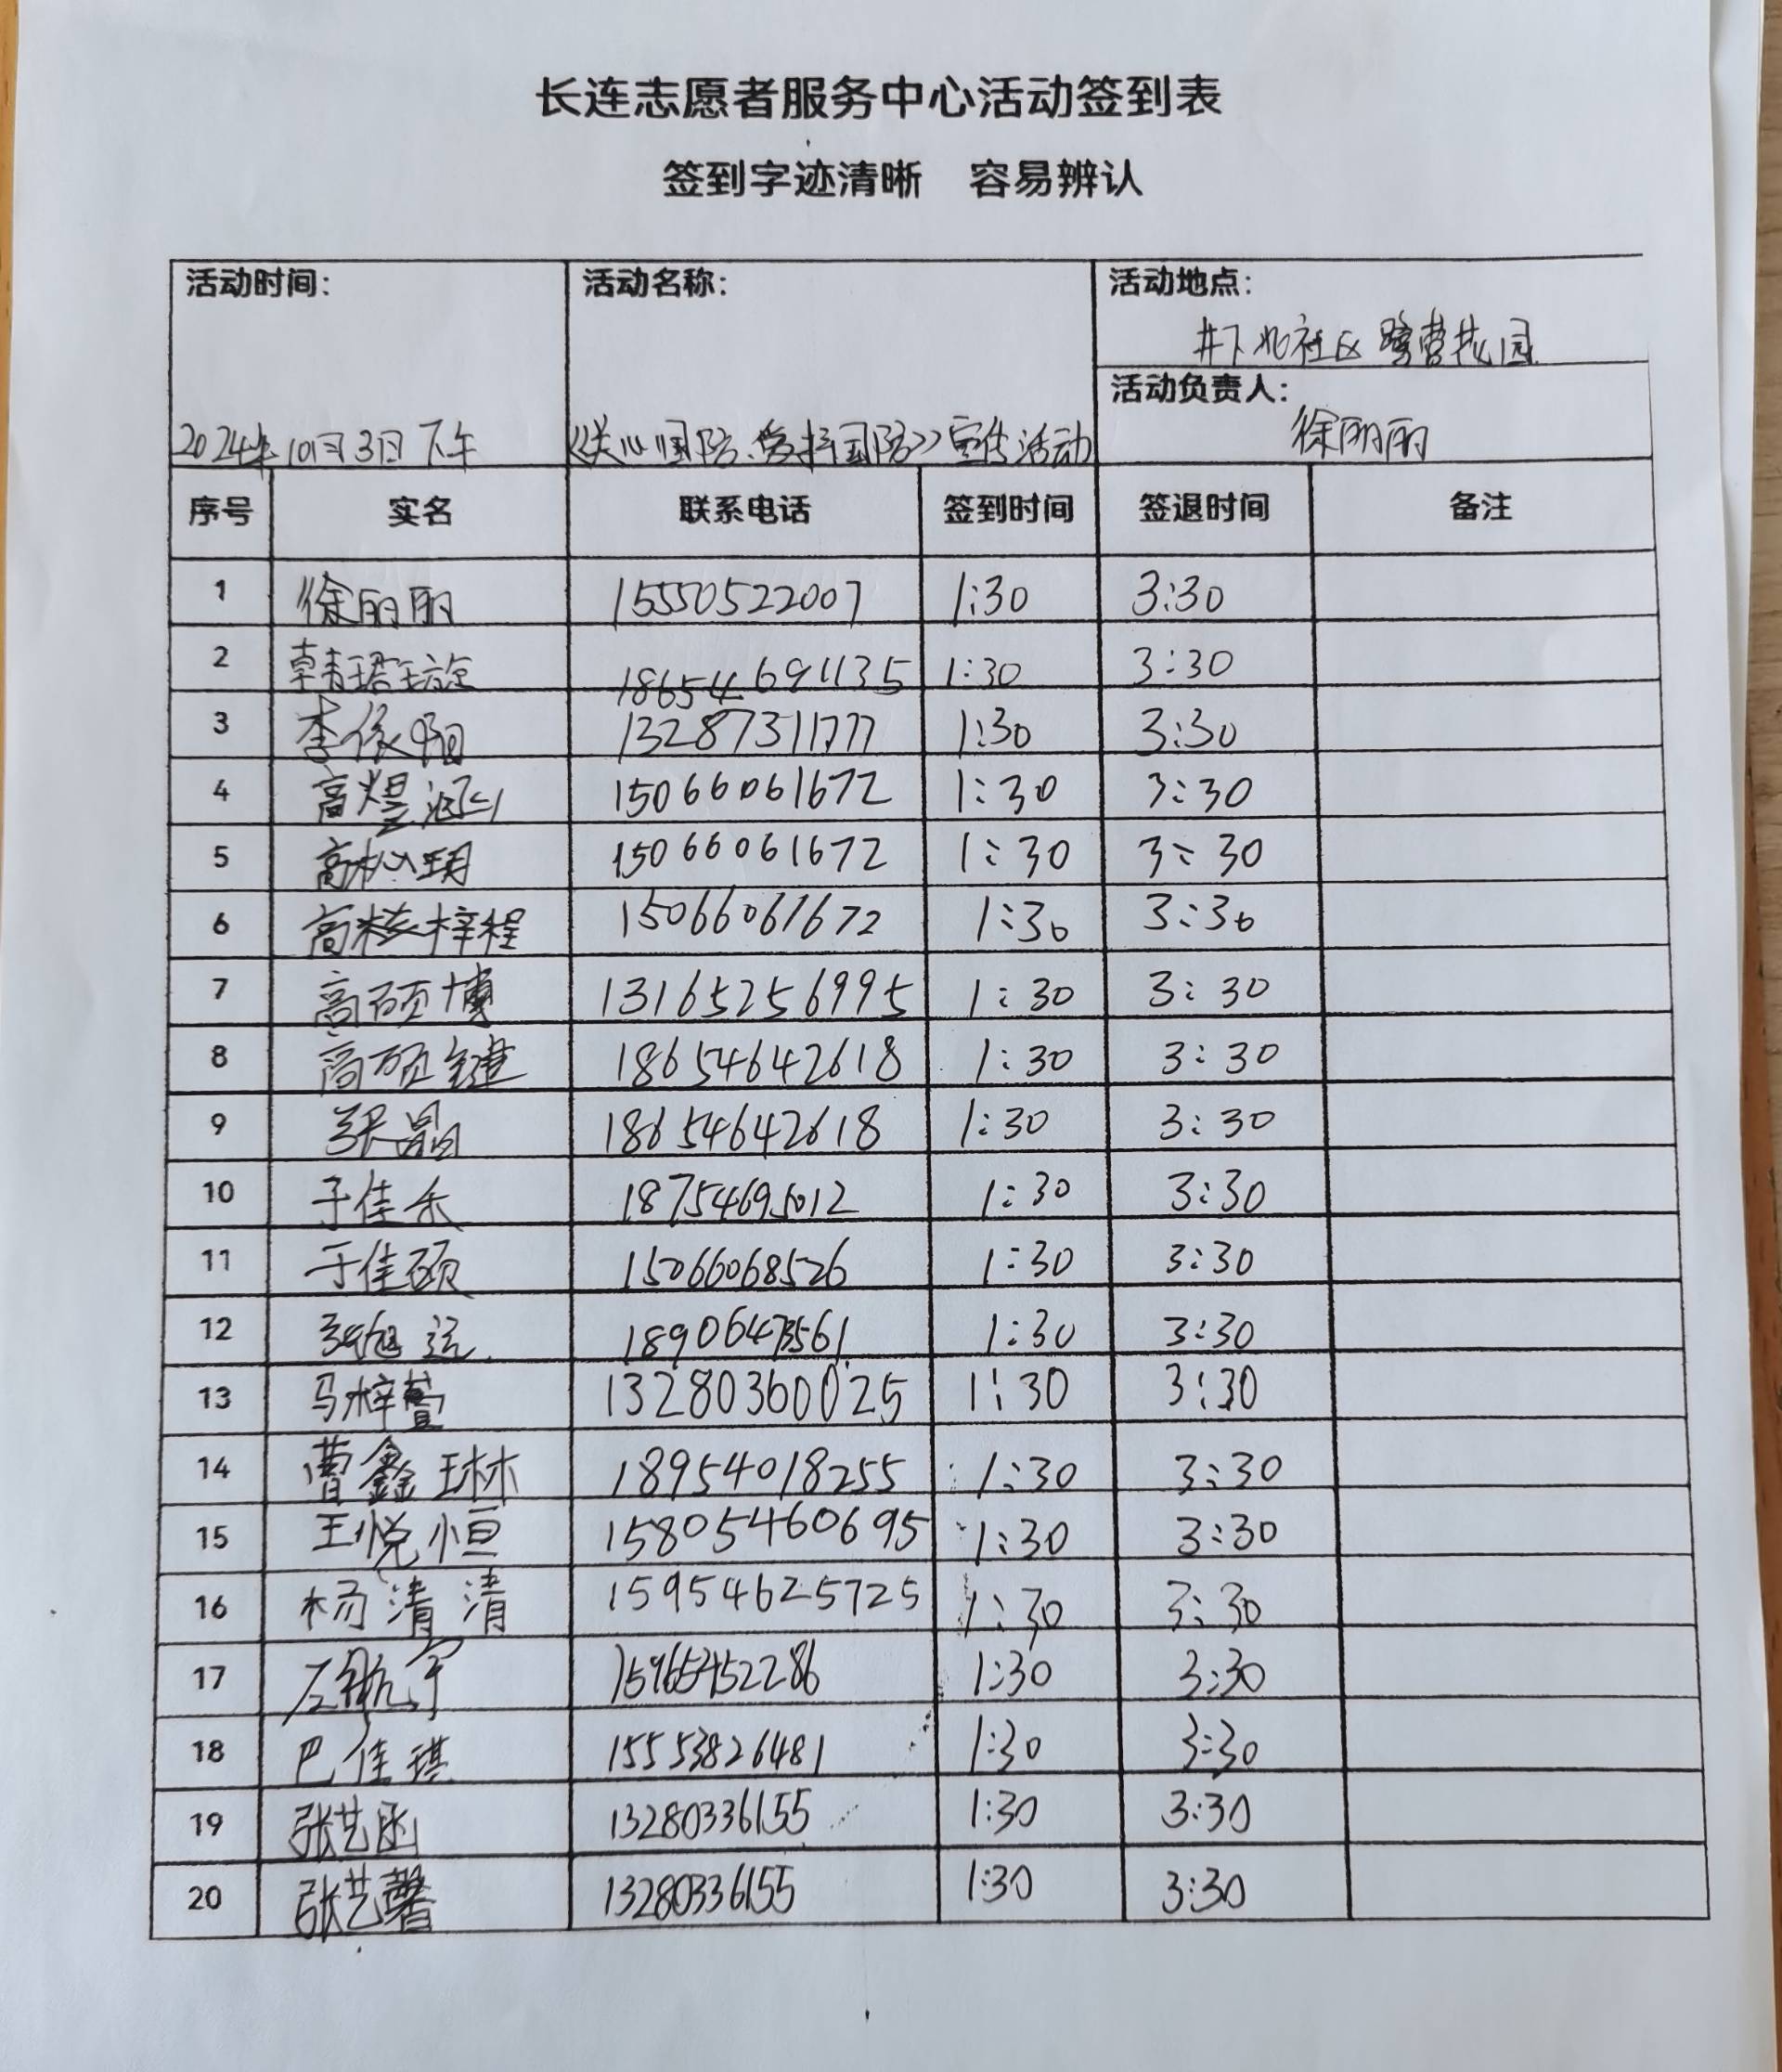 长连志愿者服务中心活动签到表
签到字迹清晰 容易辨认
活动时间: 活动名称: 活动地点:
井下北社区 花园
活动负责人:
2024年10月3日下午 《关心国防、支持国防》宣传活动 徐丽丽
序号 实名 联系电话 签到时间 签退时间 备注
1 徐丽丽 15550522007 1:30 3:30
2 韩珺璇 18654691135 1:30 3:30
3 李依阳 13287311777 1:30 3:30
4 高煜涵 15066061672 1:30 3:30
5 高松玥 15066061672 1:30 3:30
6 高梓程 15066061672 1:30 3:30
7 高硕博 13165256995 1:30 3:30
8 高硕键 18654642618 1:30 3:30
9 张晶 18654642618 1:30 3:30
10 于佳禾 18754695012 1:30 3:30
11 于佳硕 15066068526 1:30 3:30
12 1:30 3:30
13 马梓萱 13280360025 1:30 3:30
14 曹鑫琳 18954018255 1:30 3:30
15 王悦恒 15805460695 1:30 3:30
16 杨清清 15954625725 1:30 3:30
17 左航宇 15965452286 1:30 3:30
18 巴佳琪 15553826481 1:30 3:30
19 张艺函 13280336155 1:30 3:30
20 张艺馨 13280336155 1:30 3:30